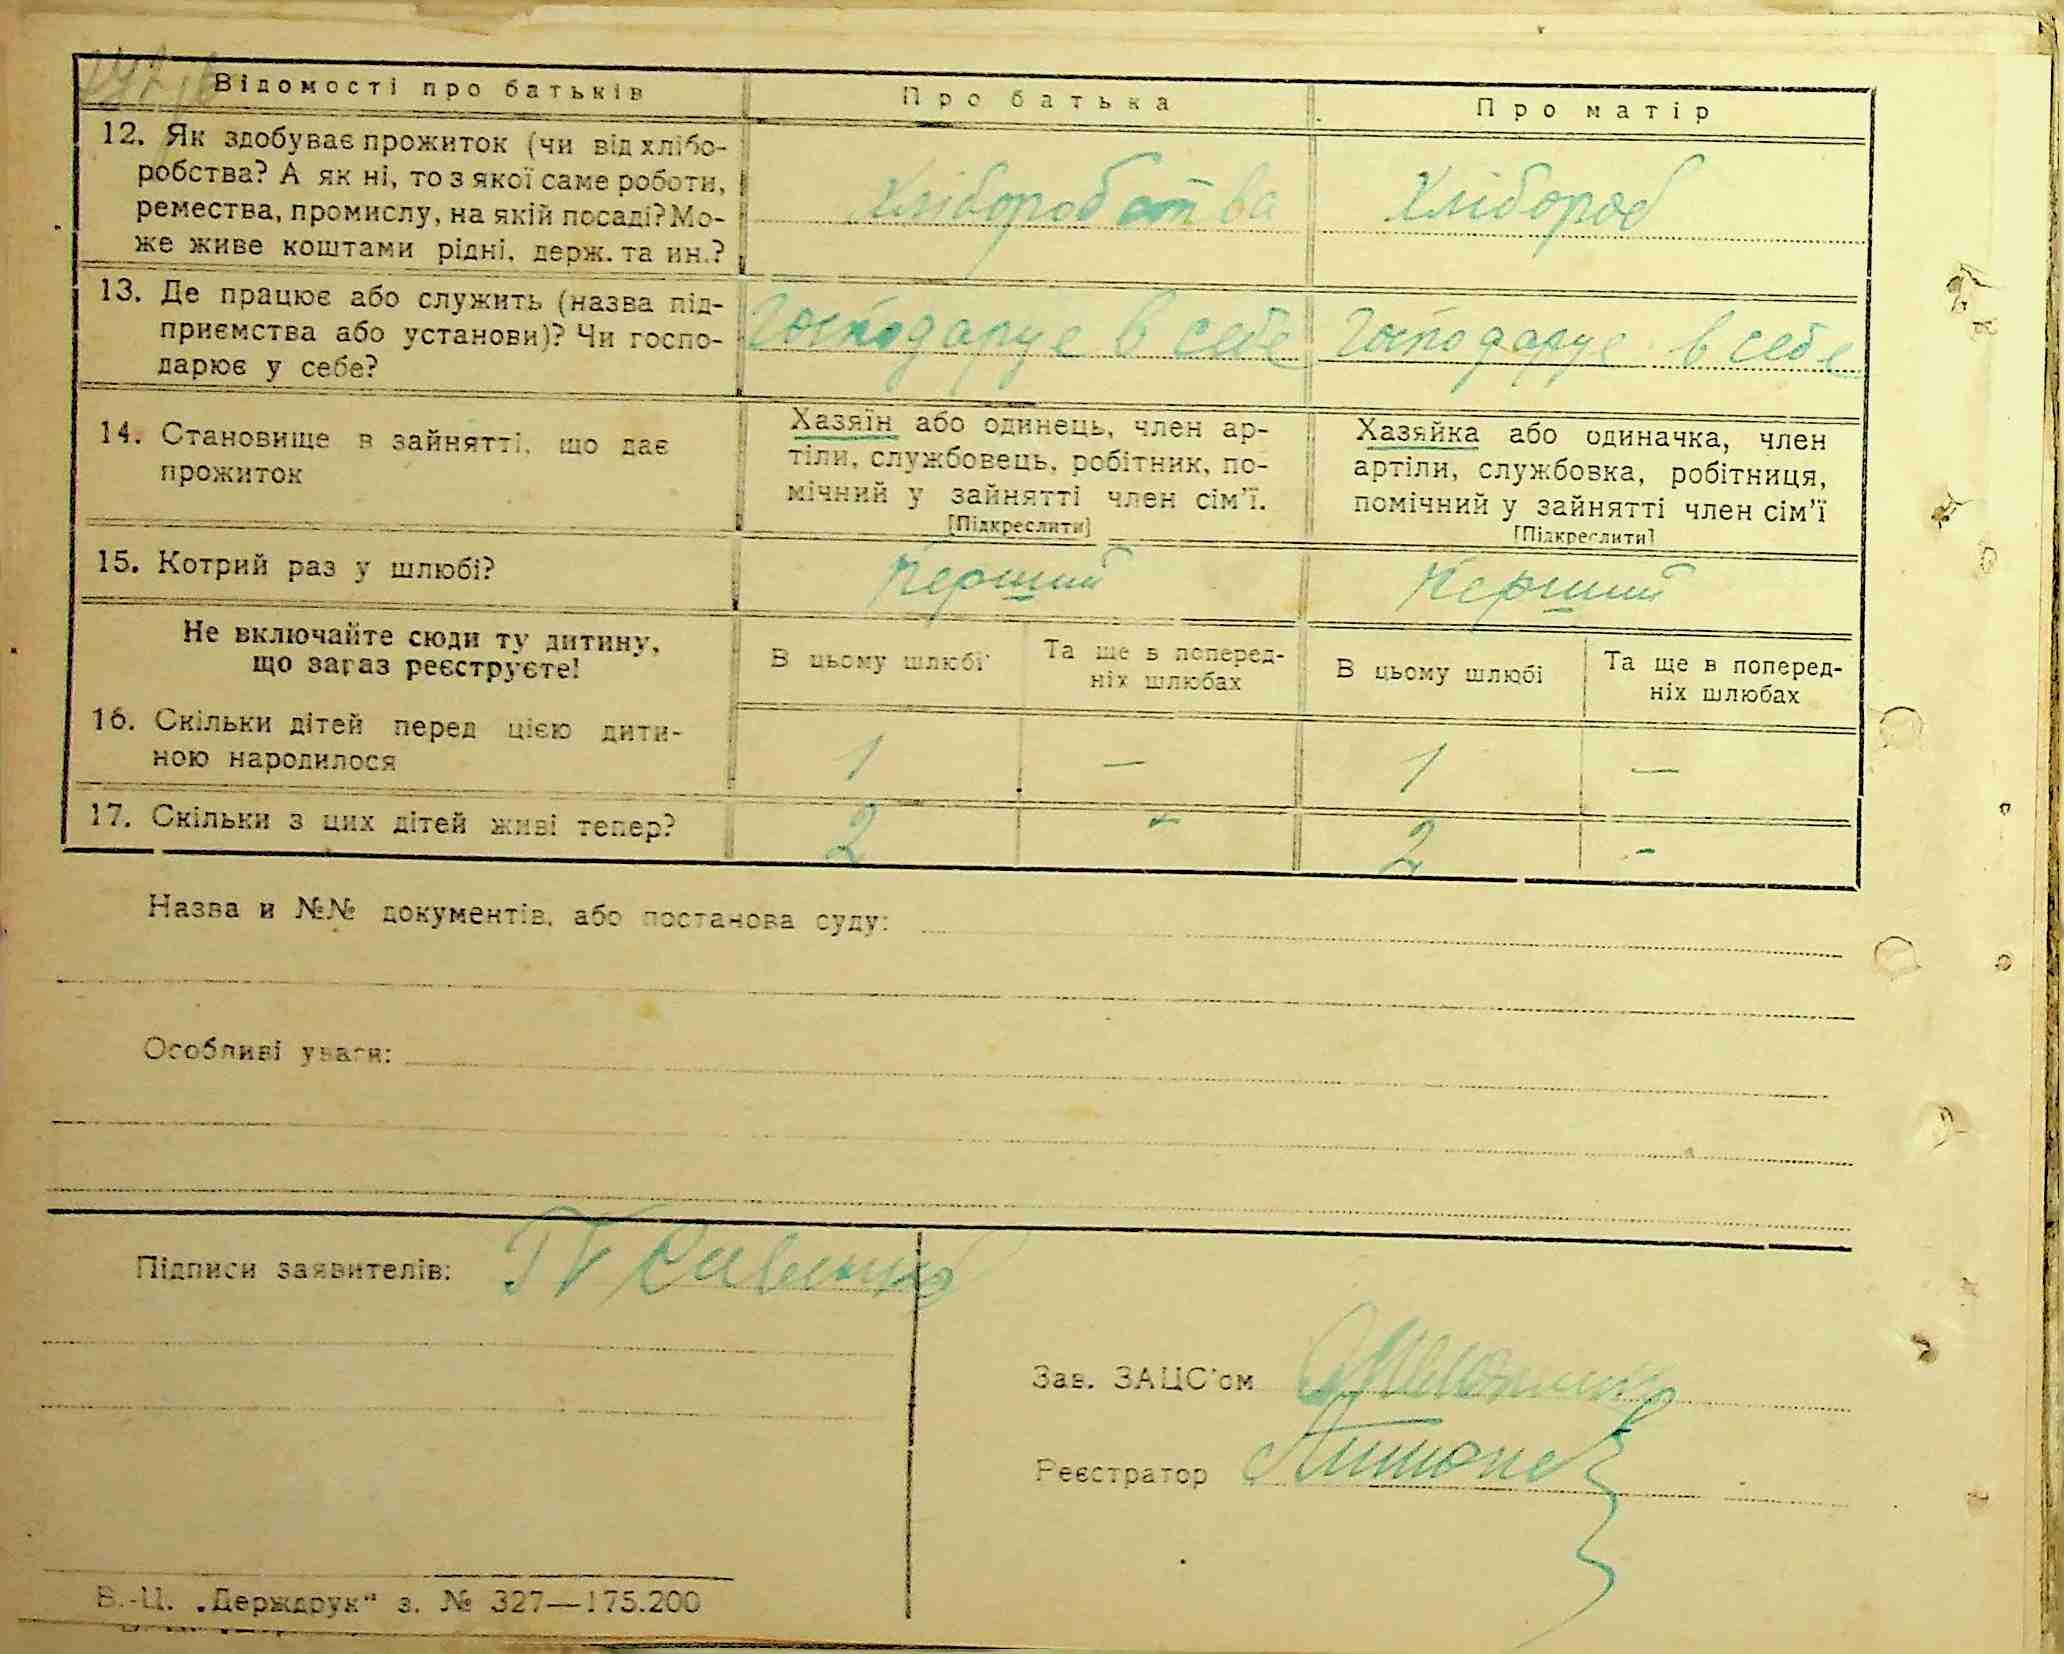 Відомості про батьків
Про батька
Про матір
12. Як здобуває прожиток (чи від хлібо-
робства? А як ні, то з якої саме роботи,
ремества, промислу, на якій посаді? Мо-
же живе коштами рідні, держ. та ин.?
Хліборобства
Хлібороб
13. Де працює або служить (назва під-
приємства або установи)? Чи госпо-
дарює у себе?
Господарує в себе
Господарує в себе
14. Становище в зайнятті, що дає
прожиток
Хазяїн або одинець, член ар-
тіли, службовець, робітник, по-
мічний у зайнятті член сім'ї.
[Підкреслити]
Хазяйка або одиначка, член
артіли, службовка, робітниця,
помічний у зайнятті член сім'ї
[Підкреслити]
15. Котрий раз у шлюбі?
Перший
Перший
Не включайте сюди ту дитину,
що зараз реєструєте!
В цьому шлюбі
Та ще в поперед-
ніх шлюбах
В цьому шлюбі
Та ще в поперед-
ніх шлюбах
16. Скільки дітей перед цією дити-
ною народилося
1 — 1 —
17. Скільки з цих дітей живі тепер?
2 - 2 -
Назва и №№ документів, або постанова суду:
Особливі уваги:
Підписи заявителів:
Зав. ЗАЦС'ом
Реєстратор
В.-Ц. „Держдрук" з. № 327—175.200